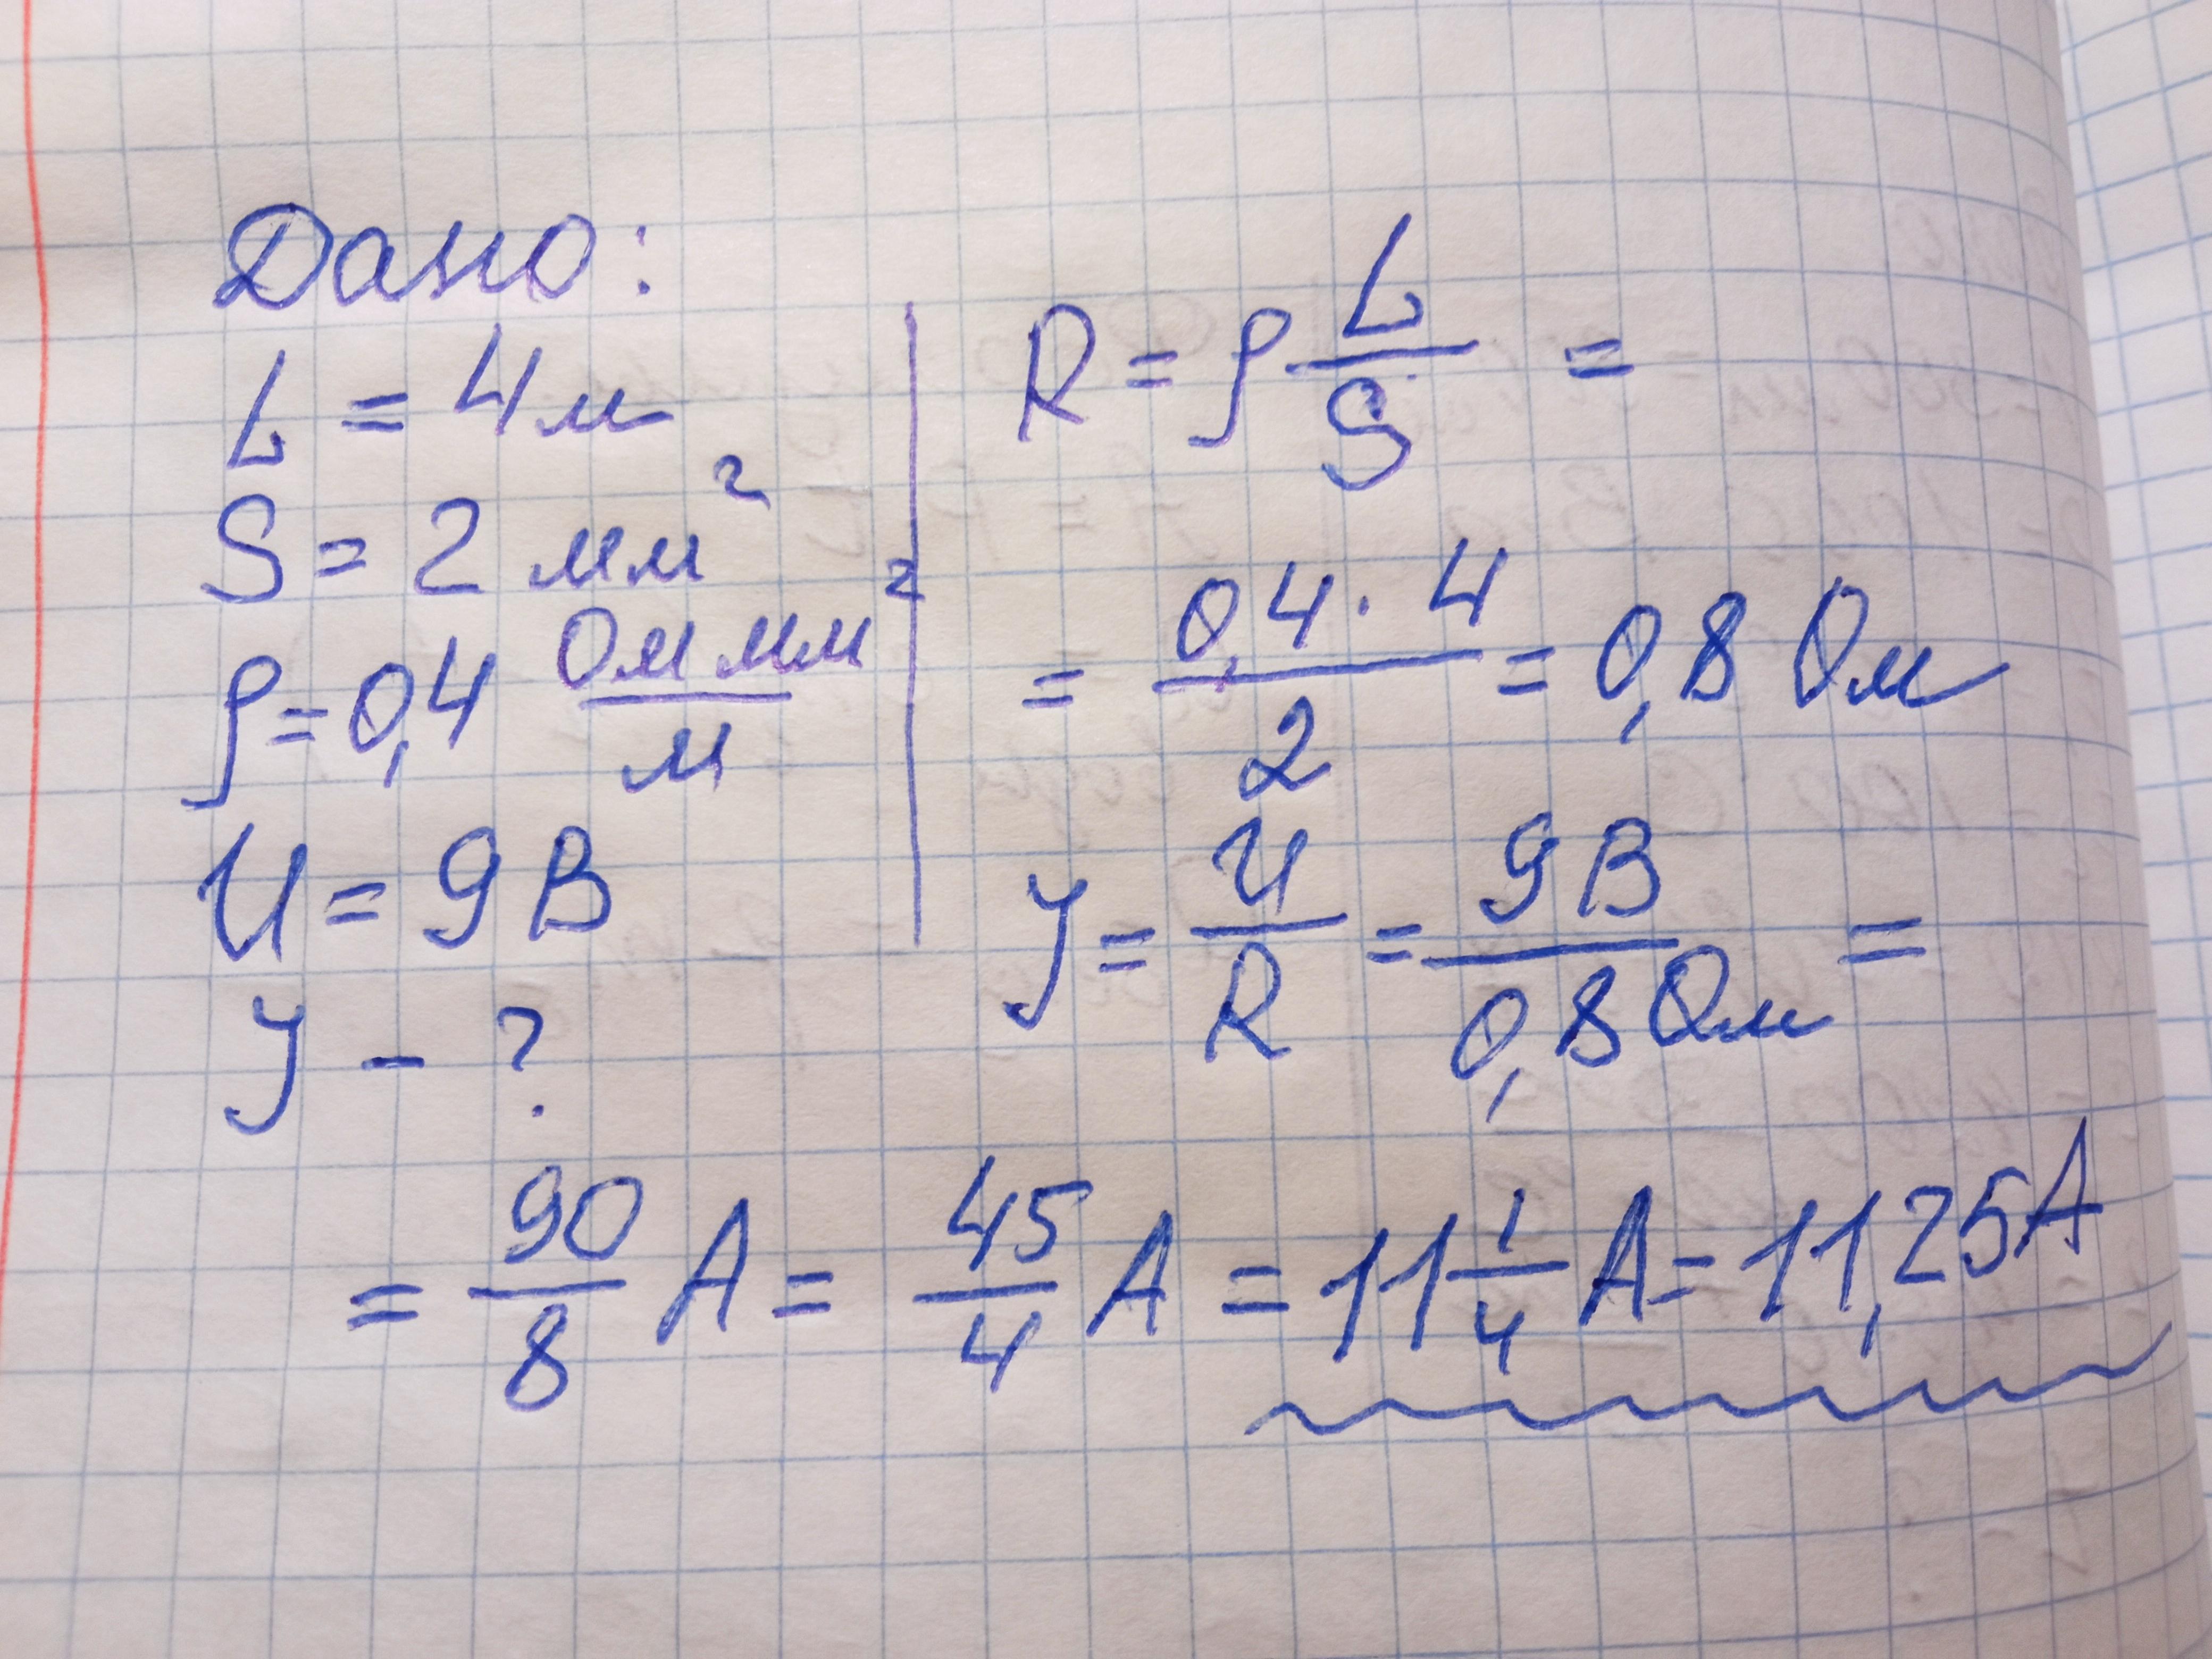 Дано:
L = 4 м
S = 2 мм²
ρ = 0,4 Ом мм²/м
U = 9 В
J - ?
R = ρ L/S =
= 0,4 · 4 / 2 = 0,8 Ом
J = U/R = 9 В / 0,8 Ом =
= 90/8 А = 45/4 А = 11 1/4 А = 11,25 А